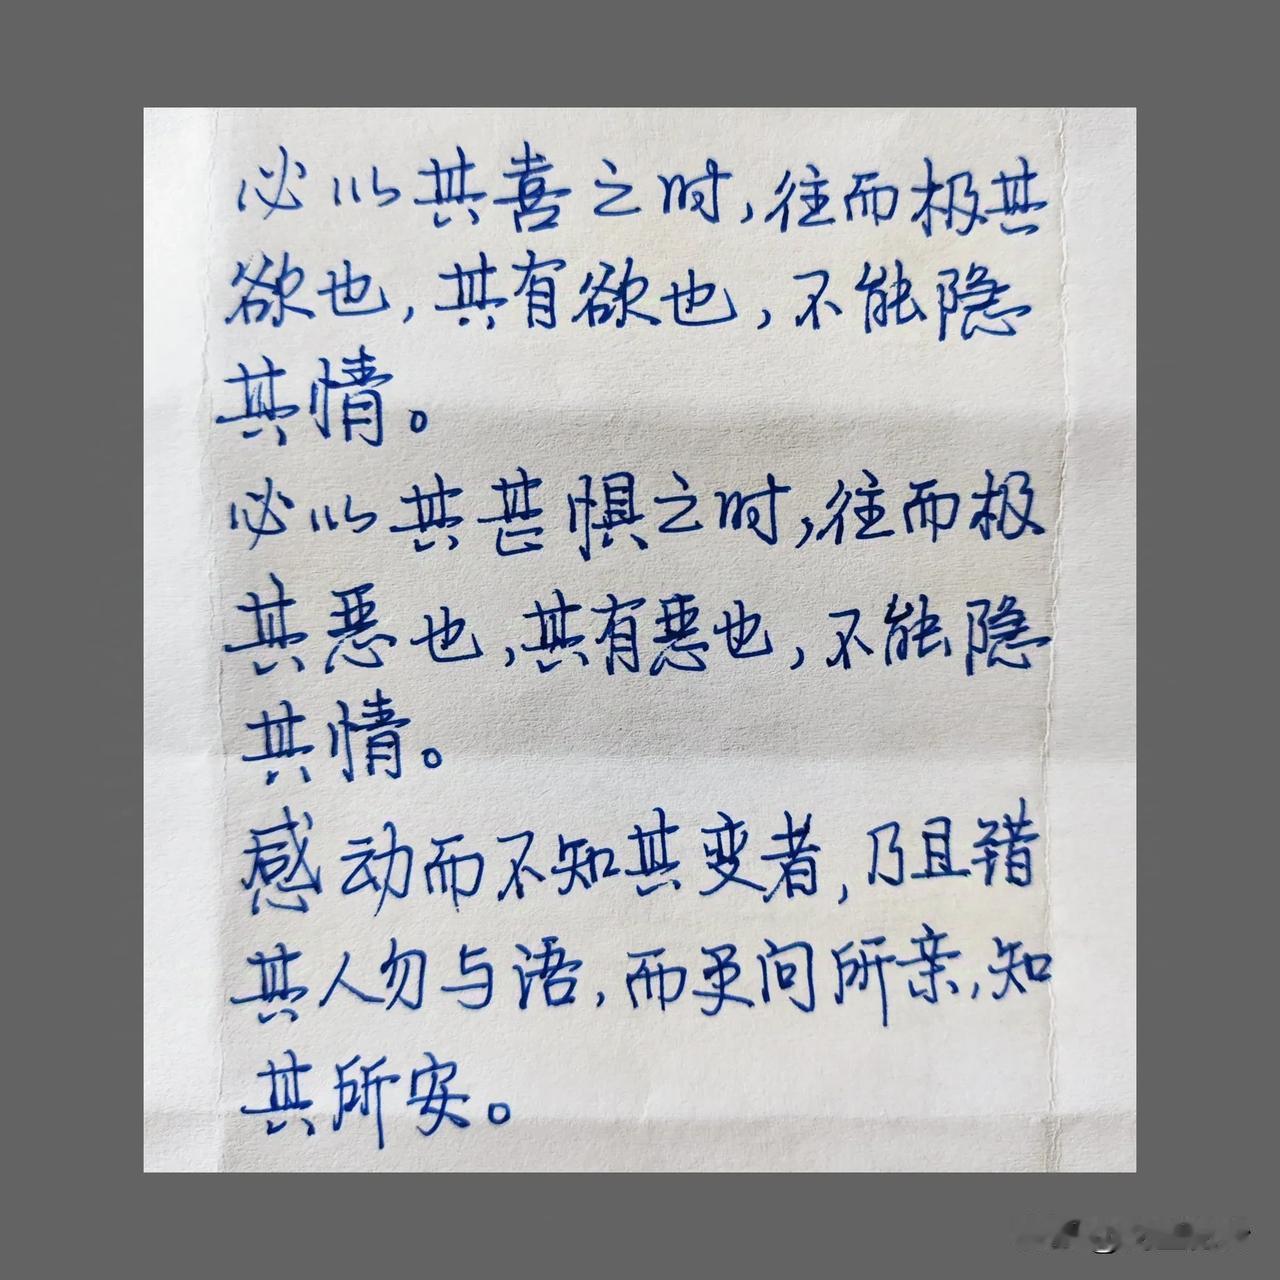 必以其喜之时,往而极其
欲也,其有欲也,不能隐
其情。
必以其甚惧之时,往而极
其恶也,其有恶也,不能隐
其情。
感动而不知其变者,乃且错
其人勿与语,而更问所亲,知
其所安。